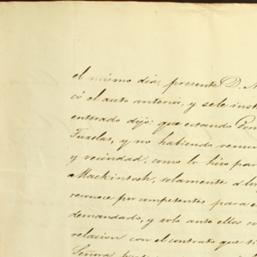 el mismo dia, presente D. A
có el auto anterior, y se le inst
enterado dijo: que estando
Tuxelas, y no habiendo renun
y vecindad, como lo hizo par
Mackintosh, solamente á los
reconoce por competentes para
demandado, y solo ante ellos
relacion con el contrato que ti
Señora